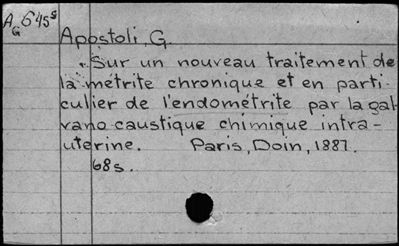 AG 645s
Apostoli, G.
Sur un nouveau traitement de
la métrite chronique et en parti-
culier de l'endométrite par la gal-
vano caustique chimique intra-
uterine. Paris, Doin, 1887.
68s.